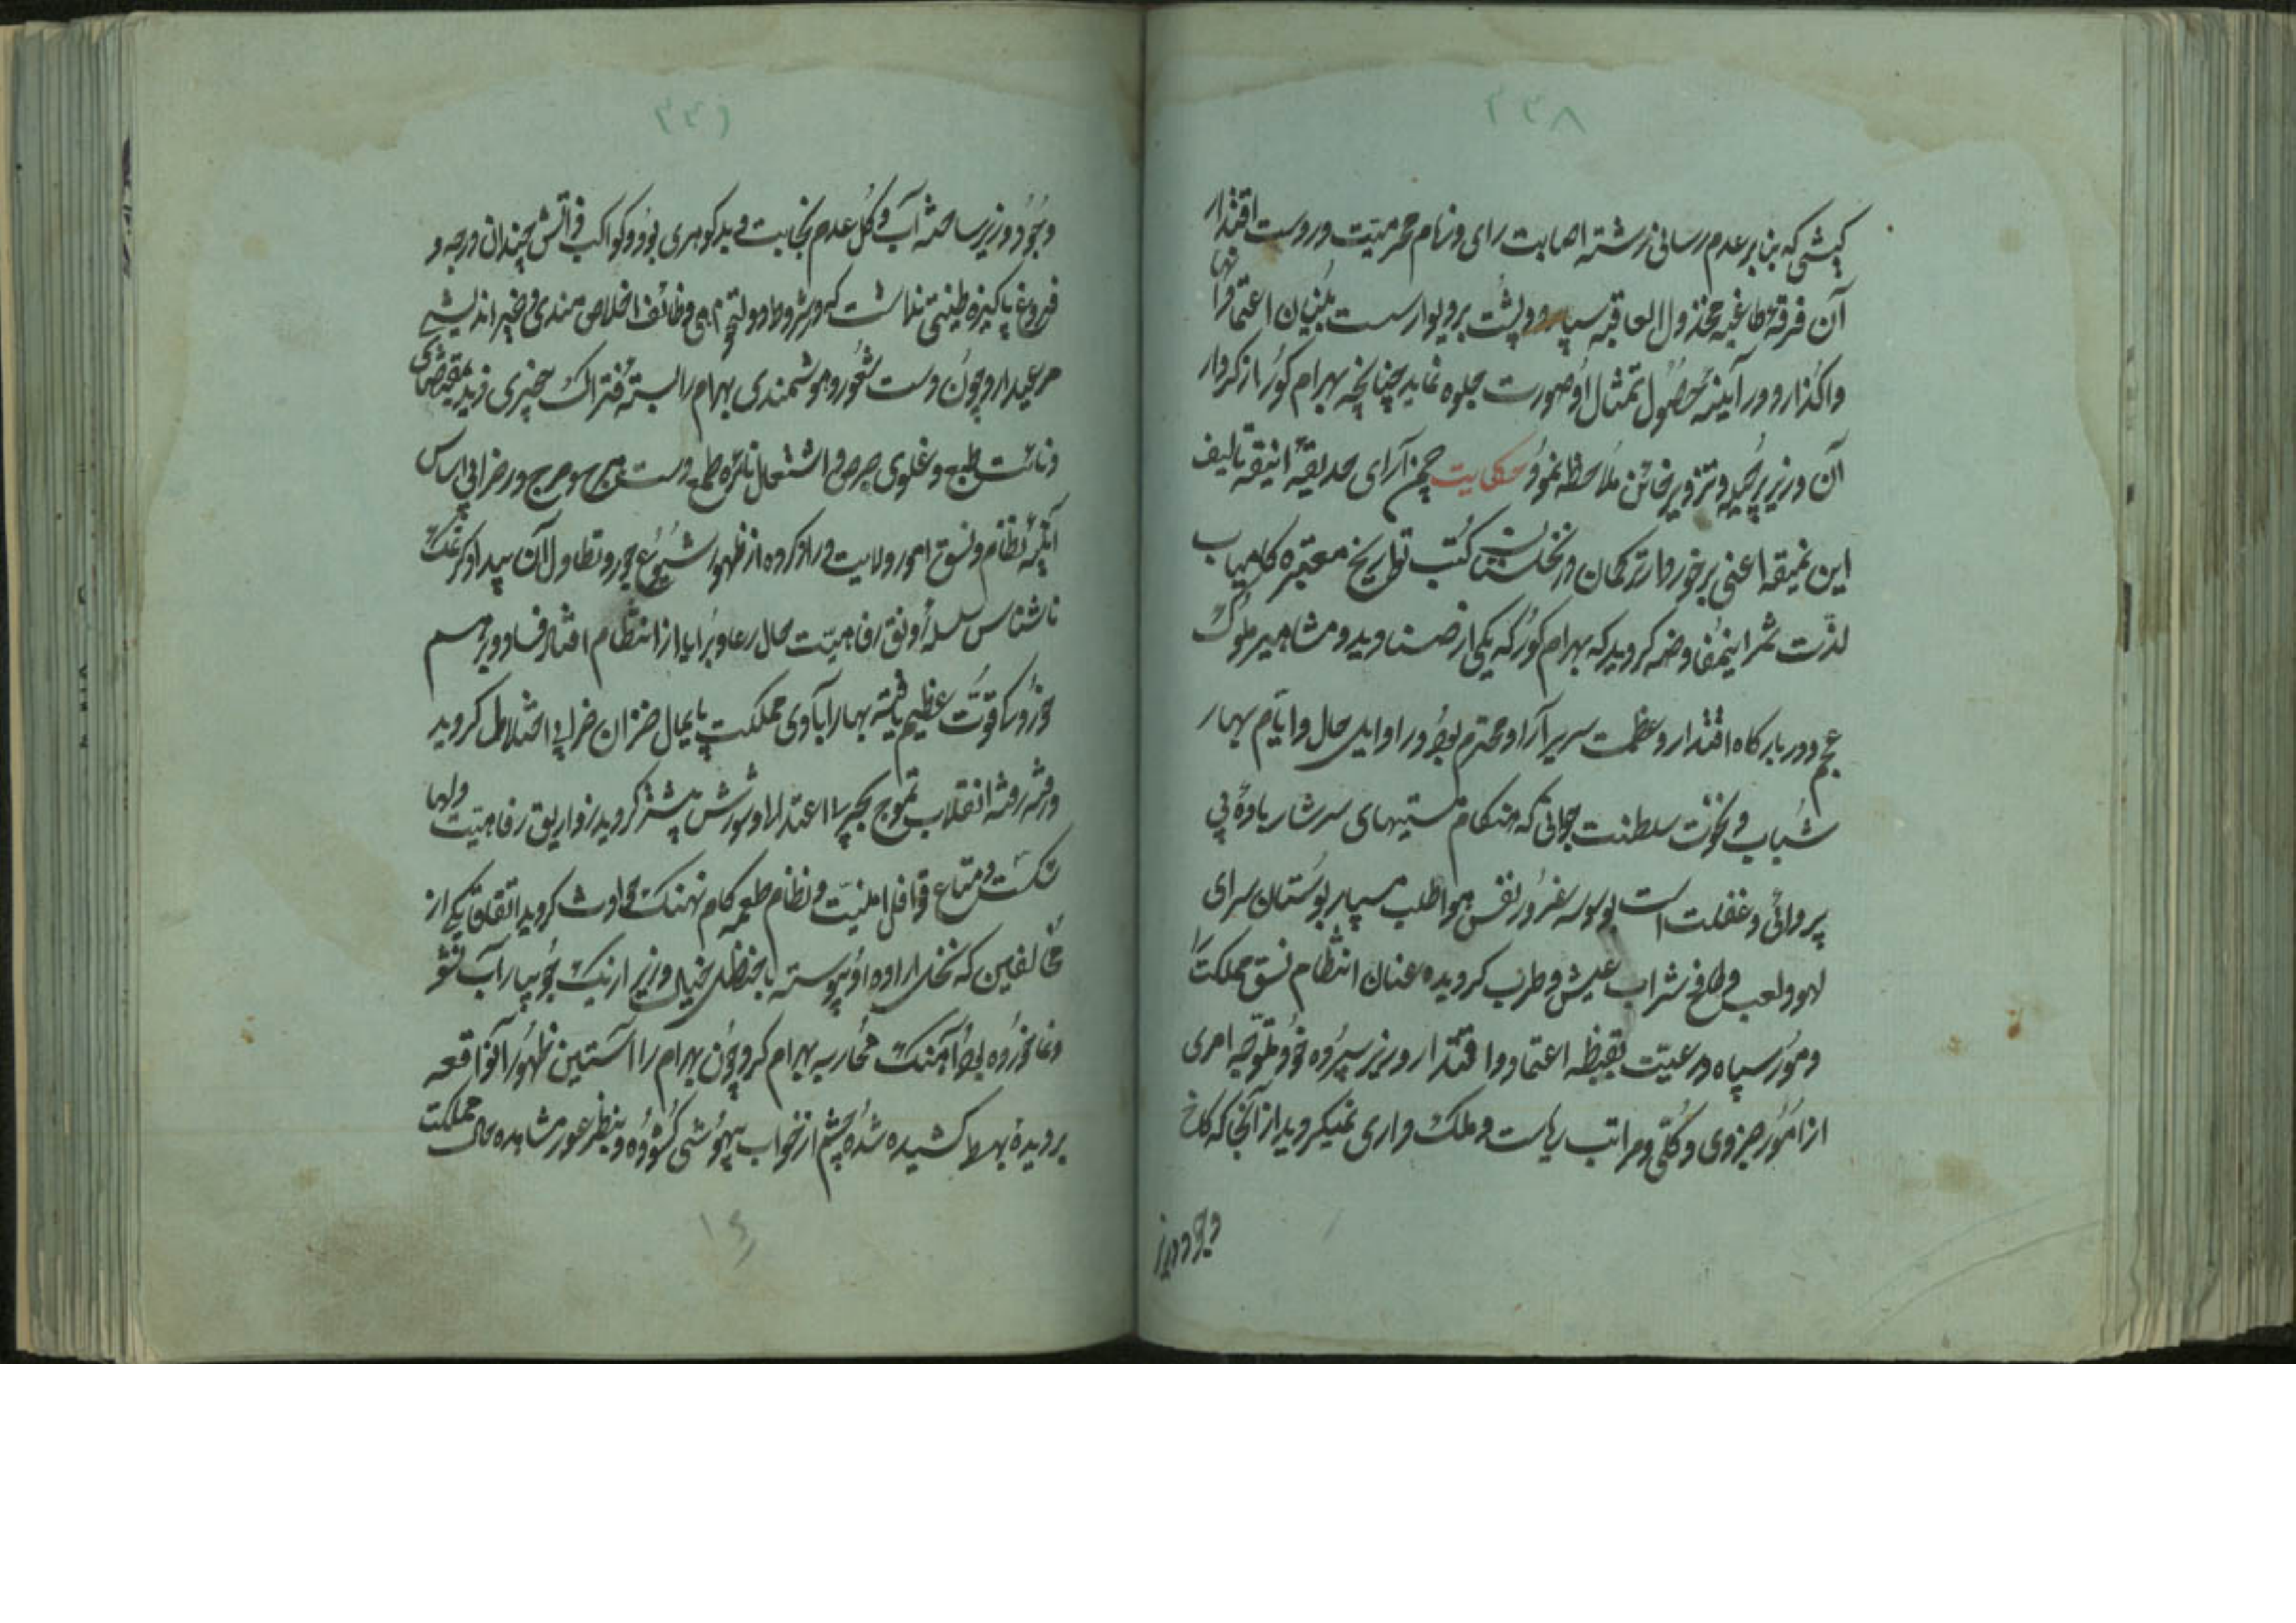 ۳۳۸
کیشی که بنابر عدم رسائی رشته اصابت رای و زمام محرمیت در دست اقتدار
آن فرقه طاغیه مخذول العاقبه سپارد و پشت بر دیوار سست بنیان اعتماد آنها
واگذارد در آینه حصول تمثال او صورت جلوه نماید چنانچه بهرام گور از کردار
آن وزیر پر حیله و تزویر خائن ملاحظه نمود حکایت چمن آرای حدیقه انیقه تالیف
این نمیقه اعنی برخوردار ترکمان در نخلستان کتب تواریخ معتبره کامیاب
لذت ثمر اینمفاوضه گردید که بهرام گور که یکی از صنادید و مشاهیر ملوک
عجم و در بارگاه اقتدار و عظمت سریر آرا و محترم بود در اوایل حال و ایام بهار
شباب و نخوت سلطنت جوانی که هنگام مستیهای سرشار باده بی
پروائی و غفلت است بوسوسه غرور نفس هوا طلب سپار بوستان سرای
لهو و لعب و طافح شراب عیش و طرب گردیده عنان انتظام نسق مملکت را
و امور سپاه و رعیت بقبضه اعتماد و اقتدار وزیر سپرده خود متوجه امری
از امور جزوی و کلی و مراتب ریاست و ملک داری نمیگردید از آنجا که کاخ
وجود وزیر
۳۳۹
وجود وزیر ساخته آب و گل عدم نجابت و بد گوهری بود و کواکب ذاتش چندان درجه و
فروغ پاکیزه طینتی نداشت که در شروط دولتخواهی وظائف اخلاص مندی و خیر اندیشی
مرعیدارد چون دست شعور و هوشمندی بهرام را بسته فتراک بیخبری دید بمقتضای
دنائت طبع و غلوی حرص و اشتعال نائره طمع دست هرج و مرج در خرابی اساس
آئینه نظام و نسق امور ولایت دراز کرده از ظهور شیوع جور و تطاول آن بیدادگر نمک
ناشناس سلسله رونق رفاهیت حال رعایا و برایا از انتظام افتاد فساد و بر هم
خوردگی قوت عظیم یافته بهار آبادی مملکت پایمال خزان خرابی و اختلال گردید
و رفته رفته انقلاب تموج بحر بی اعتدالی و شورش بیشتر گردید زواریق رفاهیت دلها
شکست و متاع قوافل امنیت و نظام طعمه کام نهنگ حوادث گردید اتفاقا یکی از
مخالفین که نخل اراده او پیوسته با حنظل خیال وزیر از یک جویبار آب نشو
و نما خورده بود آهنگ محاربه بهرام کرد چون بهرام را آستین ظهور آنواقعه
بر دیده کشیده شده چشم از خواب بیهوشی گشوده و بنظر غور مشاهده حال مملکت